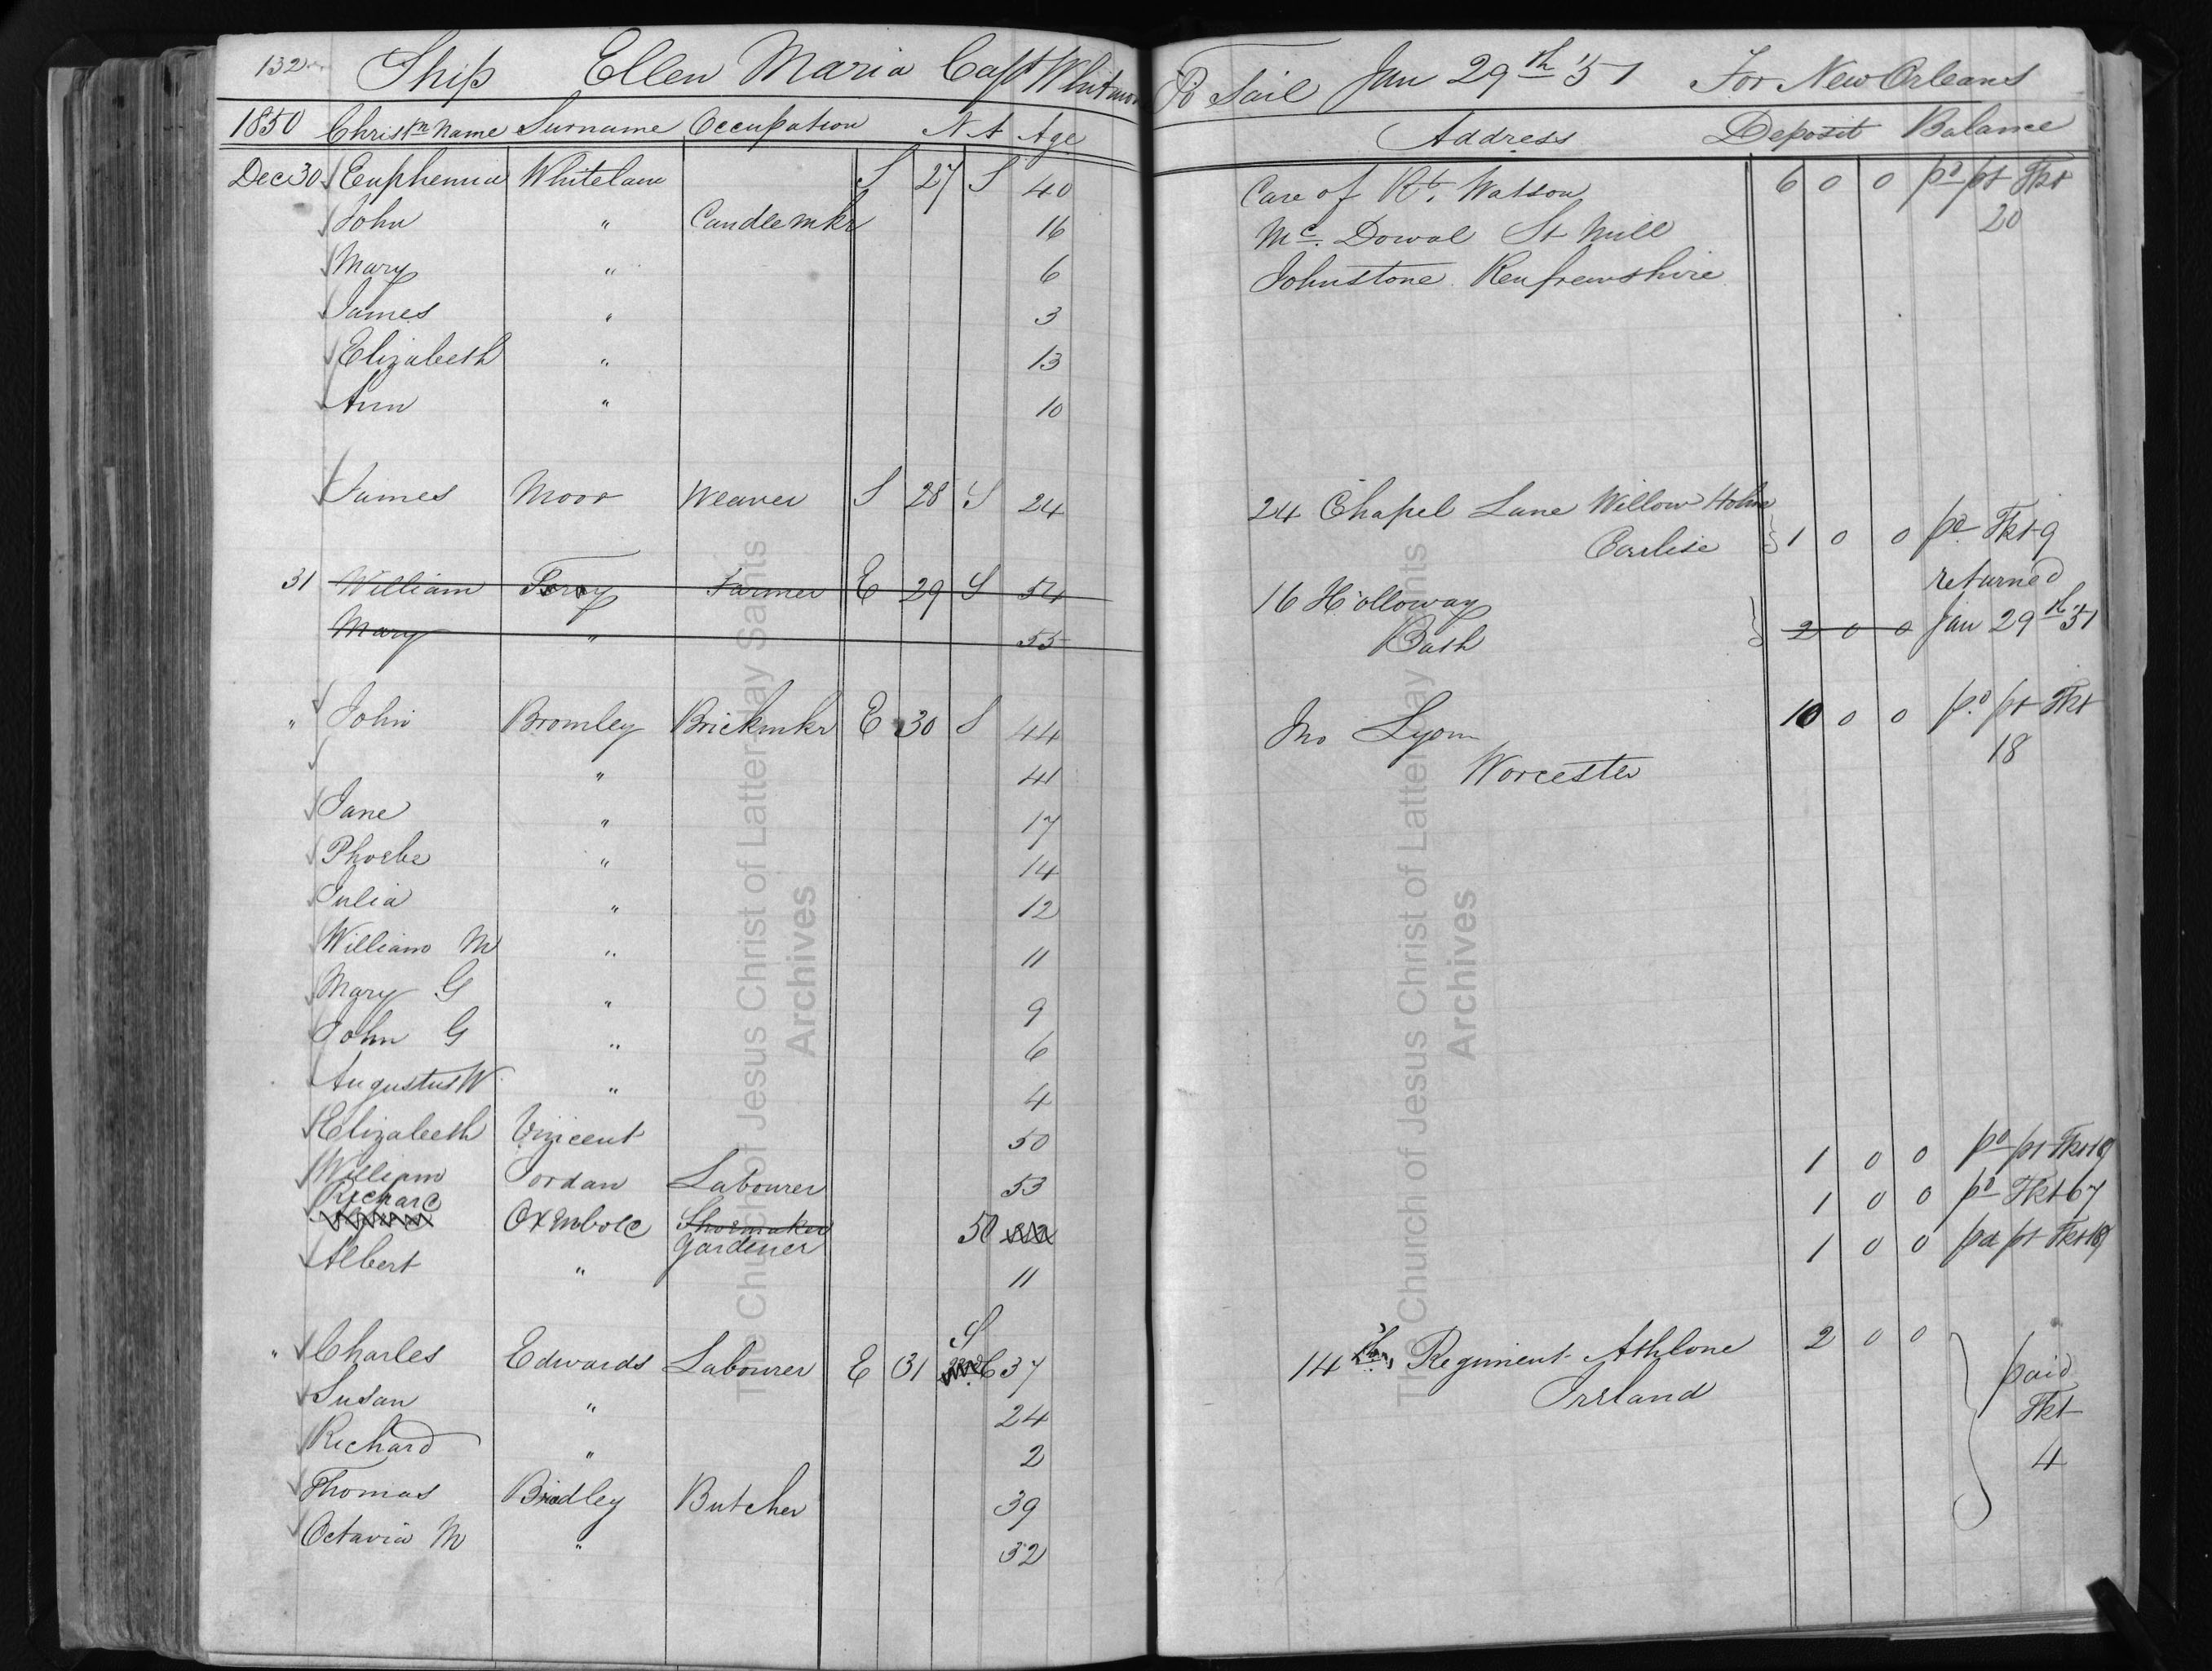 132 Ship Ellen Maria Capt Whitmore To Sail Jan 29th '51 For New Orleans
1850 Christn Name Surname Occupation N A Age Address Deposit Balance
Dec 30 Euphemia Whitelaw S 27 S 40 Care of Rt. Watson 6 0 0 pd pt Tkt
John " Candlemkr 16 Mc. Dowal St Mill 20
Mary " 6 Johnstone Renfrewshire
James " 3
Elizabeth " 13
Ann " 10
James Moor Weaver S 28 S 24 24 Chapel Lane Willow Holme
Carlise 1 0 0 pd Tkt 9
31 William Farmer E 29 S 54 16 Holloway returned
Mary " 55 Bath 2 0 0 Jan 29th 51
" John Bromley Brickmkr E 30 S 44 Jno Lyon 10 0 0 pd pt Tkt
" 41 Worcester 18
Jane " 17
Phoebe " 14
Julia " 12
William M " 11
Mary G " 9
John G " 6
Augustus W " 4
Elizabeth Vincent 50 1 0 0 pd pt Tkt 19
William Jordan Labourer 53 1 0 0 pd Tkt 67
Richard Oxenbold Shoemaker 50 1 0 0 pd pt Tkt 19
Gardener
Albert " 11
" Charles Edwards Labourer E 31 S 37 14th Regiment Athlone 2 0 0 paid
Susan " 24 Ireland Tkt
Richard " 2 4
Thomas Bradley Butcher 39
Octavia M " 32
The Church of Jesus Christ of Latter-day Saints
Archives
The Church of Jesus Christ of Latter-day Saints
Archives